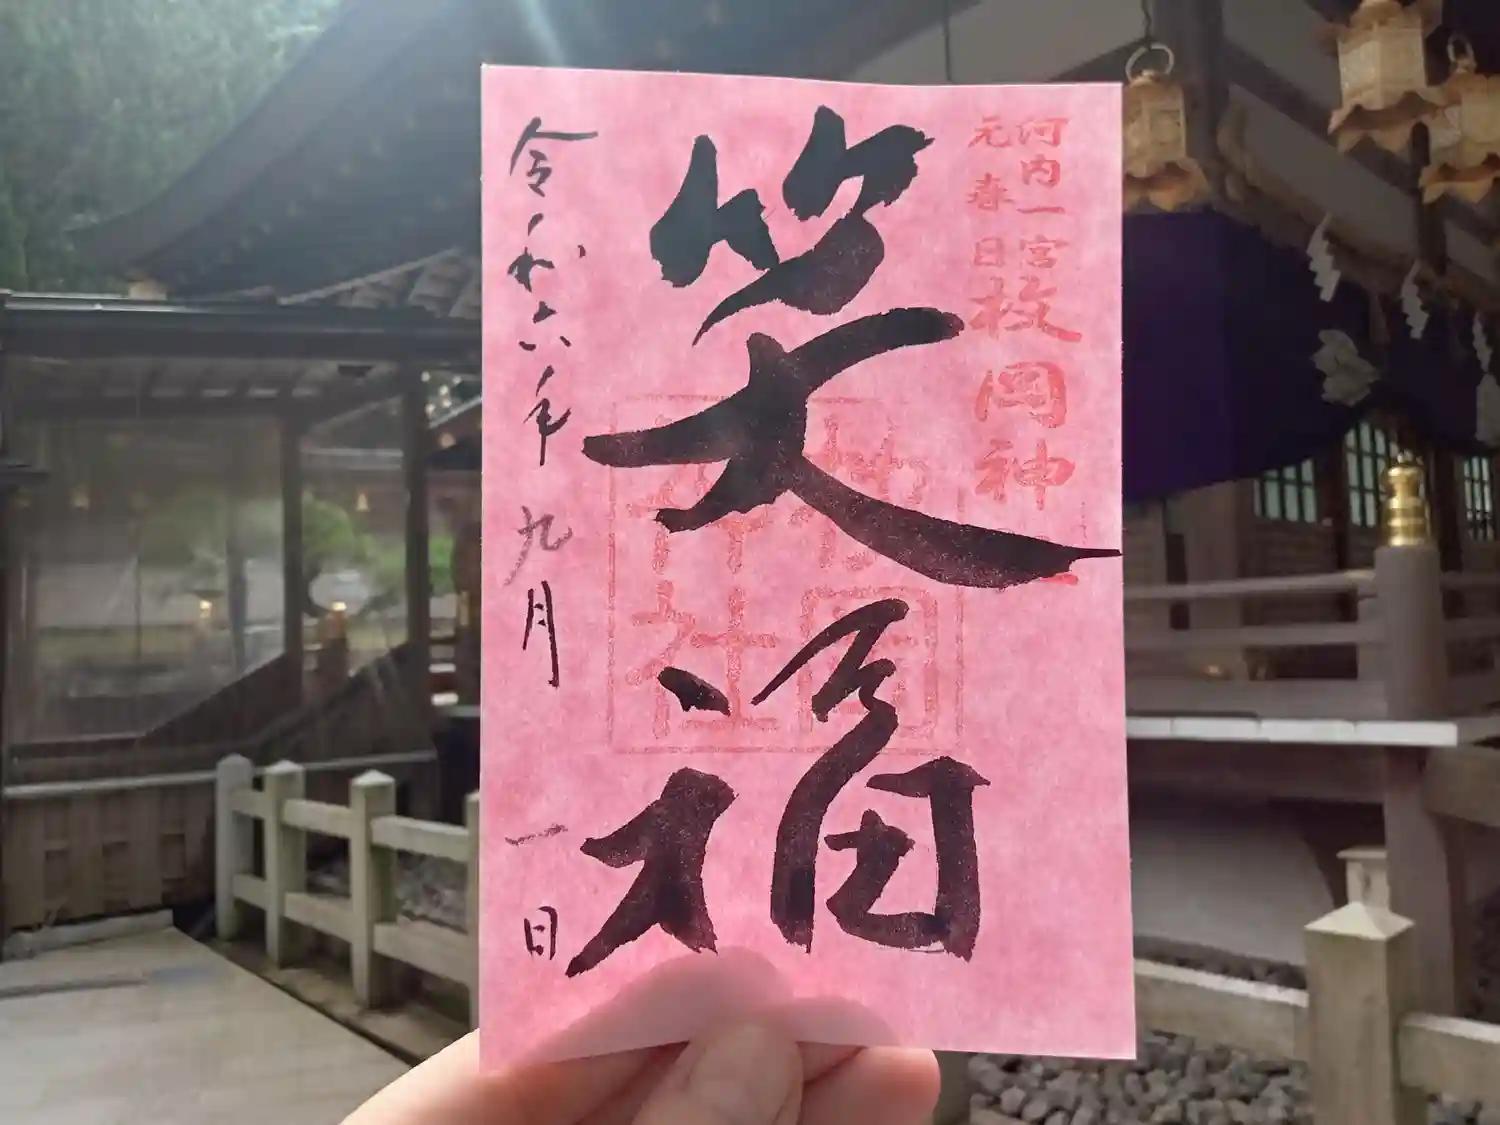 河内一宮
元春日
枚岡神社
笑福
枚岡
神社
令和六年九月一日